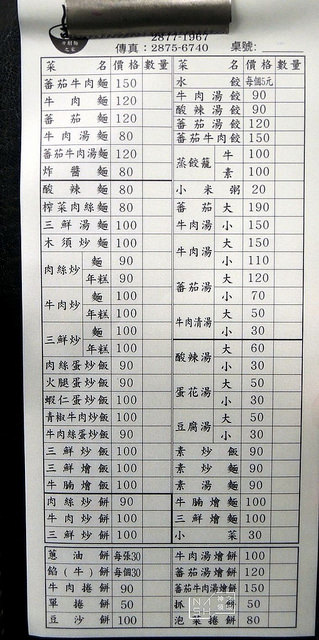 2877-1967
傳真：2875-6740 桌號:
菜 名 價格 數量
蕃茄牛肉麵 150
牛肉麵 120
蕃茄麵 120
牛肉湯麵 80
蕃茄牛肉湯麵 120
炸醬麵 80
酸辣麵 80
榨菜肉絲麵 80
三鮮湯麵 100
木須炒麵 100
肉絲炒 麵 90
年糕 90
牛肉炒 麵 100
年糕 100
三鮮炒 麵 100
年糕 100
肉絲蛋炒飯 90
火腿蛋炒飯 90
蝦仁蛋炒飯 100
青椒牛肉炒飯 100
牛肉絲蛋炒飯 90
三鮮炒飯 100
三鮮燴飯 100
牛腩燴飯 100
肉絲炒餅 90
牛肉炒餅 100
三鮮炒餅 100
蔥油餅 每張30
餡(牛)餅 每個30
牛肉捲餅 90
單捲餅 50
豆沙餅 100
菜 名 價格 數量
水餃 每個5元
牛肉湯餃 90
酸辣湯餃 90
蕃茄湯餃 120
蕃茄牛肉餃 150
蒸餃籠 牛 100
素 100
小米粥 20
蕃茄牛肉湯 大 190
小 150
牛肉湯 大 150
小 110
蕃茄湯 大 120
小 70
牛肉清湯 大 50
小 30
酸辣湯 大 60
小 30
蛋花湯 大 50
小 30
豆腐湯 大 50
小 30
素炒飯 90
素炒麵 90
素湯麵 90
牛腩燴麵 100
三鮮燴麵 100
小菜 30
牛肉湯燴餅 100
蕃茄湯燴餅 120
蕃茄牛肉湯燴餅 150
抓餅 50
泡菜捲餅 80